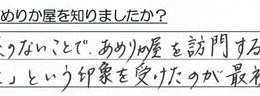 めりか屋を知りましたか？
のないことで、あめりか屋を訪問する
」という印象を受けたのが最初